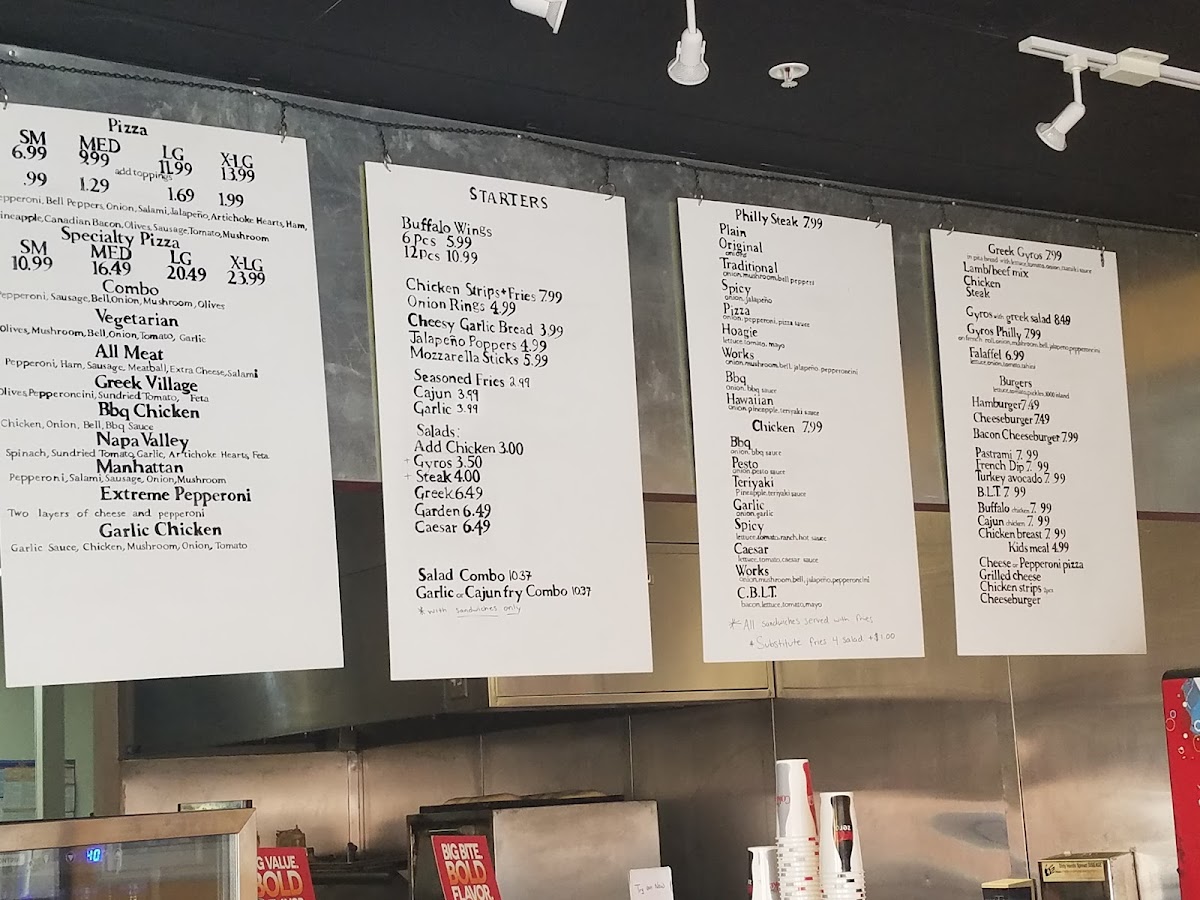 Pizza
SM MED LG X-LG
6.99 9.99 11.99 13.99
add toppings
.99 1.29 1.69 1.99
epperoni, Bell Peppers, Onion, Salami, Jalapeño, Artichoke Hearts, Ham,
ineapple, Canadian Bacon, Olives, Sausage, Tomato, Mushroom
Specialty Pizza
SM MED LG X-LG
10.99 16.49 20.49 23.99
Combo
Pepperoni, Sausage, Bell, Onion, Mushroom, Olives
Vegetarian
Olives, Mushroom, Bell, Onion, Tomato, Garlic
All Meat
Pepperoni, Ham, Sausage, Meatball, Extra Cheese, Salami
Greek Village
Olives, Pepperoncini, Sundried Tomato, Feta
Bbq Chicken
Chicken, Onion, Bell, Bbq Sauce
Napa Valley
Spinach, Sundried Tomato, Garlic, Artichoke Hearts, Feta
Manhattan
Pepperoni, Salami, Sausage, Onion, Mushroom
Extreme Pepperoni
Two layers of cheese and pepperoni
Garlic Chicken
Garlic Sauce, Chicken, Mushroom, Onion, Tomato
STARTERS
Buffalo Wings
6 Pcs 5.99
12 Pcs 10.99
Chicken Strips+Fries 7.99
Onion Rings 4.99
Cheesy Garlic Bread 3.99
Jalapeño Poppers 4.99
Mozzarella Sticks 5.99
Seasoned Fries 2.99
Cajun 3.99
Garlic 3.99
Salads:
Add Chicken 3.00
+ Gyros 3.50
+ Steak 4.00
Greek 6.49
Garden 6.49
Caesar 6.49
Salad Combo 10.37
Garlic or Cajun fry Combo 10.37
* with sandwiches only
Philly Steak 7.99
Plain
Original
onions
Traditional
onion, mushroom, bell peppers
Spicy
onion, jalapeño
Pizza
onion, pepperoni, pizza sauce
Hoagie
lettuce, tomato, mayo
Works
onion, mushroom, bell, jalapeño, pepperoncini
Bbq
onion, bbq sauce
Hawaiian
onion, pineapple, teriyaki sauce
Chicken 7.99
Bbq
onion, bbq sauce
Pesto
onion, pesto sauce
Teriyaki
Pineapple, teriyaki sauce
Garlic
onion, garlic
Spicy
lettuce, tomato, ranch, hot sauce
Caesar
lettuce, tomato, caesar sauce
Works
onion, mushroom, bell, jalapeño, pepperoncini
C.B.L.T.
bacon, lettuce, tomato, mayo
* All sandwiches served with fries
* Substitute fries 4 salad +$1.00
Greek Gyros 7.99
in pita bread with lettuce, tomato, onion, tzatziki sauce
Lamb/beef mix
Chicken
Steak
Gyros with greek salad 8.49
Gyros Philly 7.99
on french roll, onion, mushroom, bell, jalapeño, pepperoncini
Falaffel 6.99
lettuce, onion, tomato, tahini
Burgers
lettuce, tomato, pickles, 1000 island
Hamburger 7.49
Cheeseburger 7.49
Bacon Cheeseburger 7.99
Pastrami 7.99
French Dip 7.99
Turkey avocado 7.99
B.L.T. 7.99
Buffalo chicken 7.99
Cajun chicken 7.99
Chicken breast 7.99
Kids meal 4.99
Cheese or Pepperoni pizza
Grilled cheese
Chicken strips 2pcs
Cheeseburger
40
G VALUE.
BOLD
BIG BITE.
BOLD
FLAVOR.
Try me Now
zero